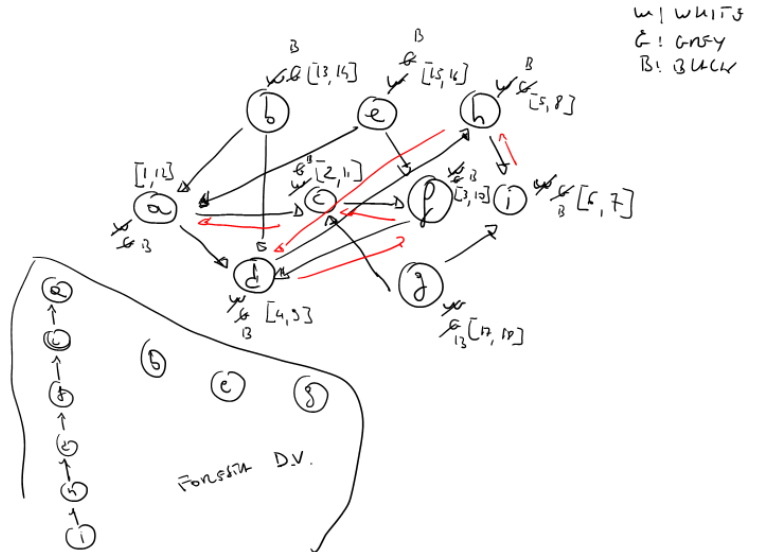 W! WHITE
G! GREY
B! BLACK
B
W G [13,14]
b
B
W G [15,16]
e
B
W G [5,8]
h
[1,12]
a
W G B
G B [2,11]
W
c
W G B
[3,10]
f
i
W G B [6,7]
d
W G B [4,9]
g
W G B [17,18]
a
c
f
d
h
i
b
e
g
FORESTA D.V.